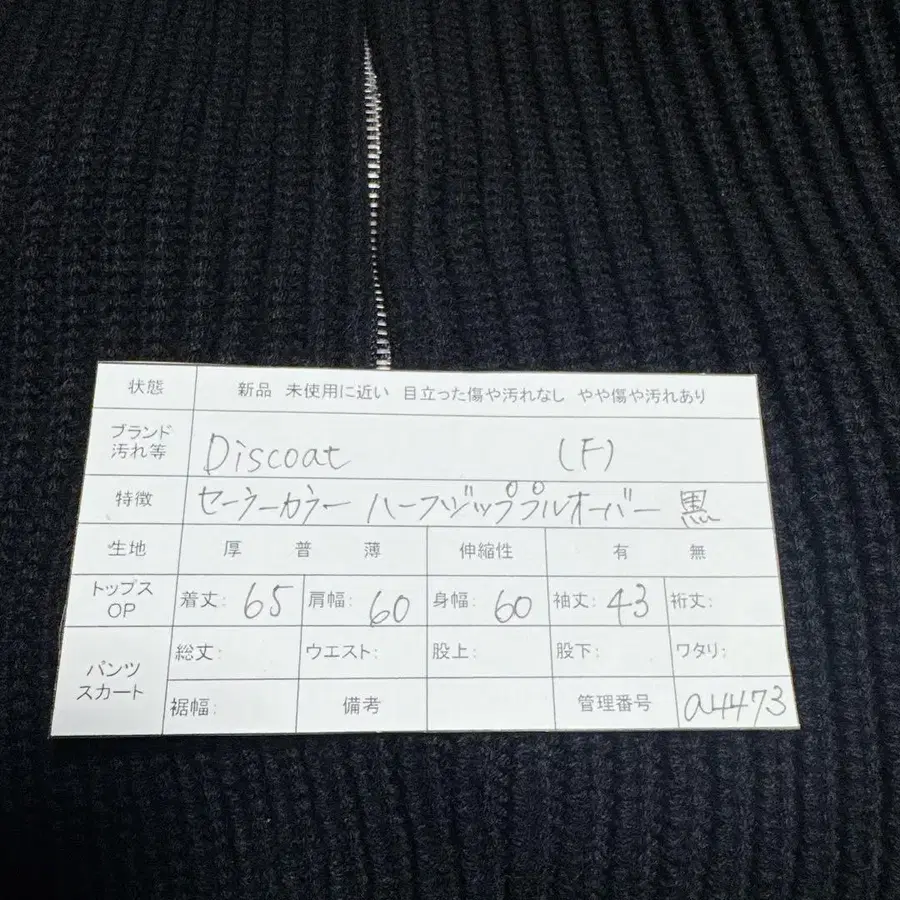 状態 新品 未使用に近い 目立った傷や汚れなし やや傷や汚れあり
ブランド
汚れ等 Discoat (F)
特徴 セーラーカラー ハーフジッププルオーバー 黒
生地 厚 普 薄 伸縮性 有 無
トップス
OP 着丈: 65 肩幅: 60 身幅: 60 袖丈: 43 裄丈:
パンツ
スカート 総丈: ウエスト: 股上: 股下: ワタリ:
裾幅: 備考 管理番号 a4473